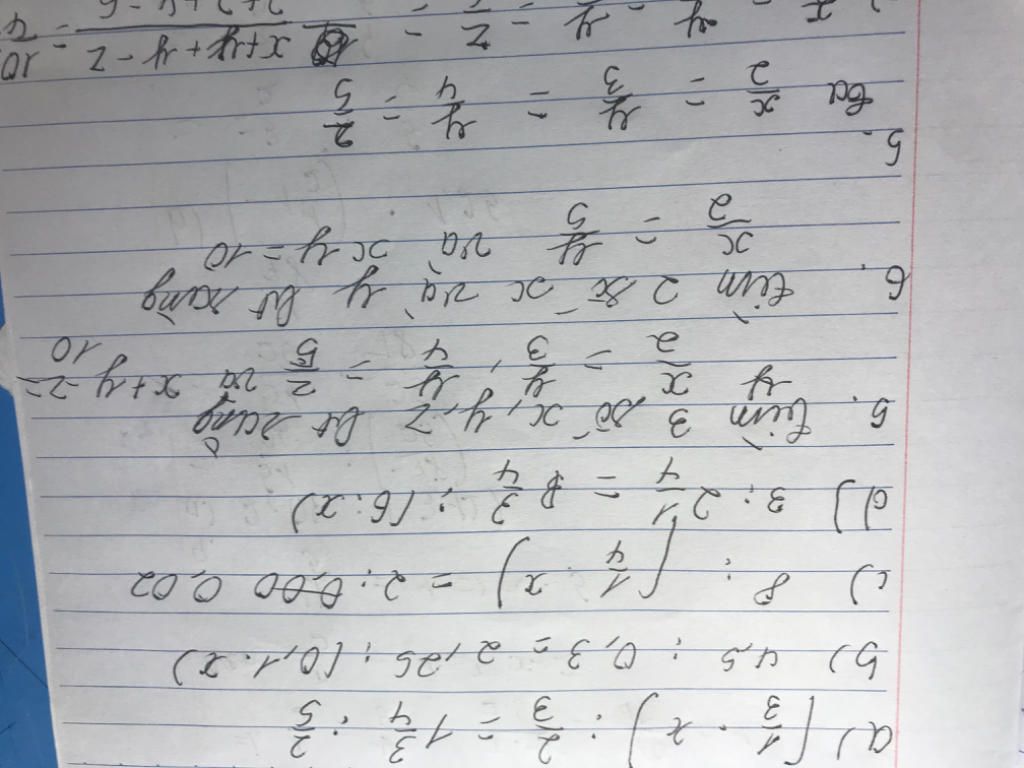 a) (1/3 . x) : 2/3 = 1 3/4 : 2/5
b) 4,5 : 0,3 = 2,25 : (0,1 . x)
c) 8 : (1/4 . x) = 2 : 0,02
d) 3 : 2 1/4 = 3/4 : (6 : x)
5. tìm 3 số x, y, z bt rằng
x/2 = y/3, y/4 = z/5 và x + y - z = 10
6. tìm 2 số x và y bt rằng
x/2 = y/5 và x y = 10
5.
x/2 = y/3 = y/4 = 2/5
x + y + y - z